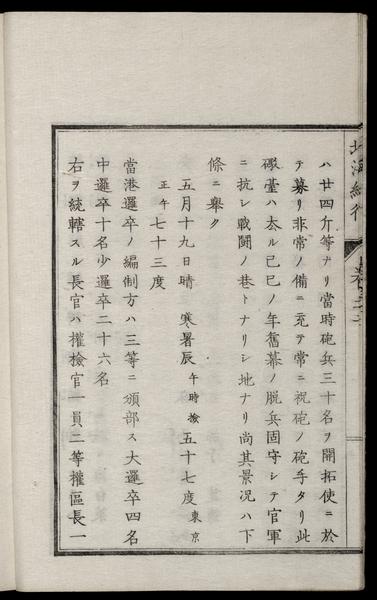 ハ廿四斤等ナリ當時砲兵三十名ヲ開拓使ニ於
テ募リ非常ノ備ニ充テ常ニ祝砲ノ砲手タリ此
礮臺ハ太ル己巳ノ年舊幕ノ脱兵固守シテ官軍
ニ抗シ戰鬪ノ巷トナリシ地ナリ尚其景況ハ下
條ニ擧ク
五月十九日晴 寒暑辰午時檢五十七度東京
正午七十三度
當港邏卒ノ編制方ハ三等ニ頒部ス大邏卒四名
中邏卒十名少邏卒二十六名
右ヲ統轄スル長官ハ權檢官一員二等權區長一